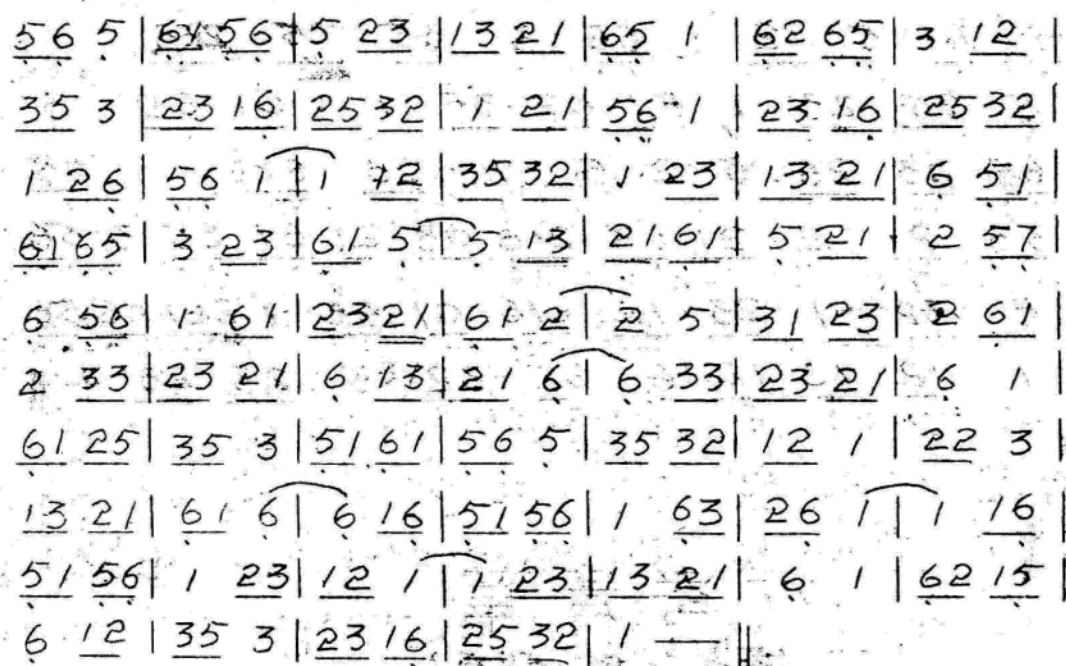 56 5 | 61 56 | 5 23 | 13 21 | 65 1 | 62 65 | 3 12 |
35 3 | 23 16 | 25 32 | 1 21 | 56 1 | 23 16 | 25 32 |
1 26 | 56 1 | 1 12 | 35 32 | 1 23 | 13 21 | 6 51 |
61 65 | 3 23 | 61 5 | 5 13 | 21 61 | 5 21 | 2 57 |
6 56 | 1 61 | 23 21 | 61 2 | 2 5 | 31 23 | 2 61 |
2 33 | 23 21 | 6 13 | 21 6 | 6 33 | 23 21 | 6 1 |
61 25 | 35 3 | 51 61 | 56 5 | 35 32 | 12 1 | 22 3 |
13 21 | 61 6 | 6 16 | 51 56 | 1 63 | 26 1 | 1 16 |
51 56 | 1 23 | 12 1 | 1 23 | 13 21 | 6 1 | 62 15 |
6 12 | 35 3 | 23 16 | 25 32 | 1 — ||